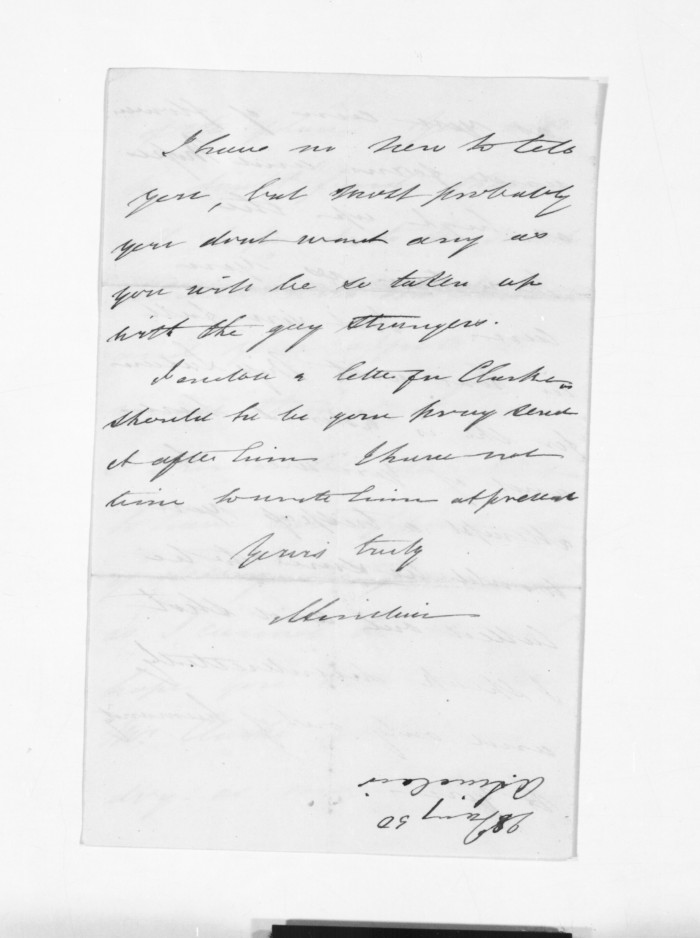 I have no new to tell
you, but most probably
you dont want any as
you will be so taken up
with the gay strangers.
I enclose a letter for Clarke
should he be gone pray send
it after him I have not
time to write him at present
Yours truly
ASinclair
A Sinclair
28 Jany 50